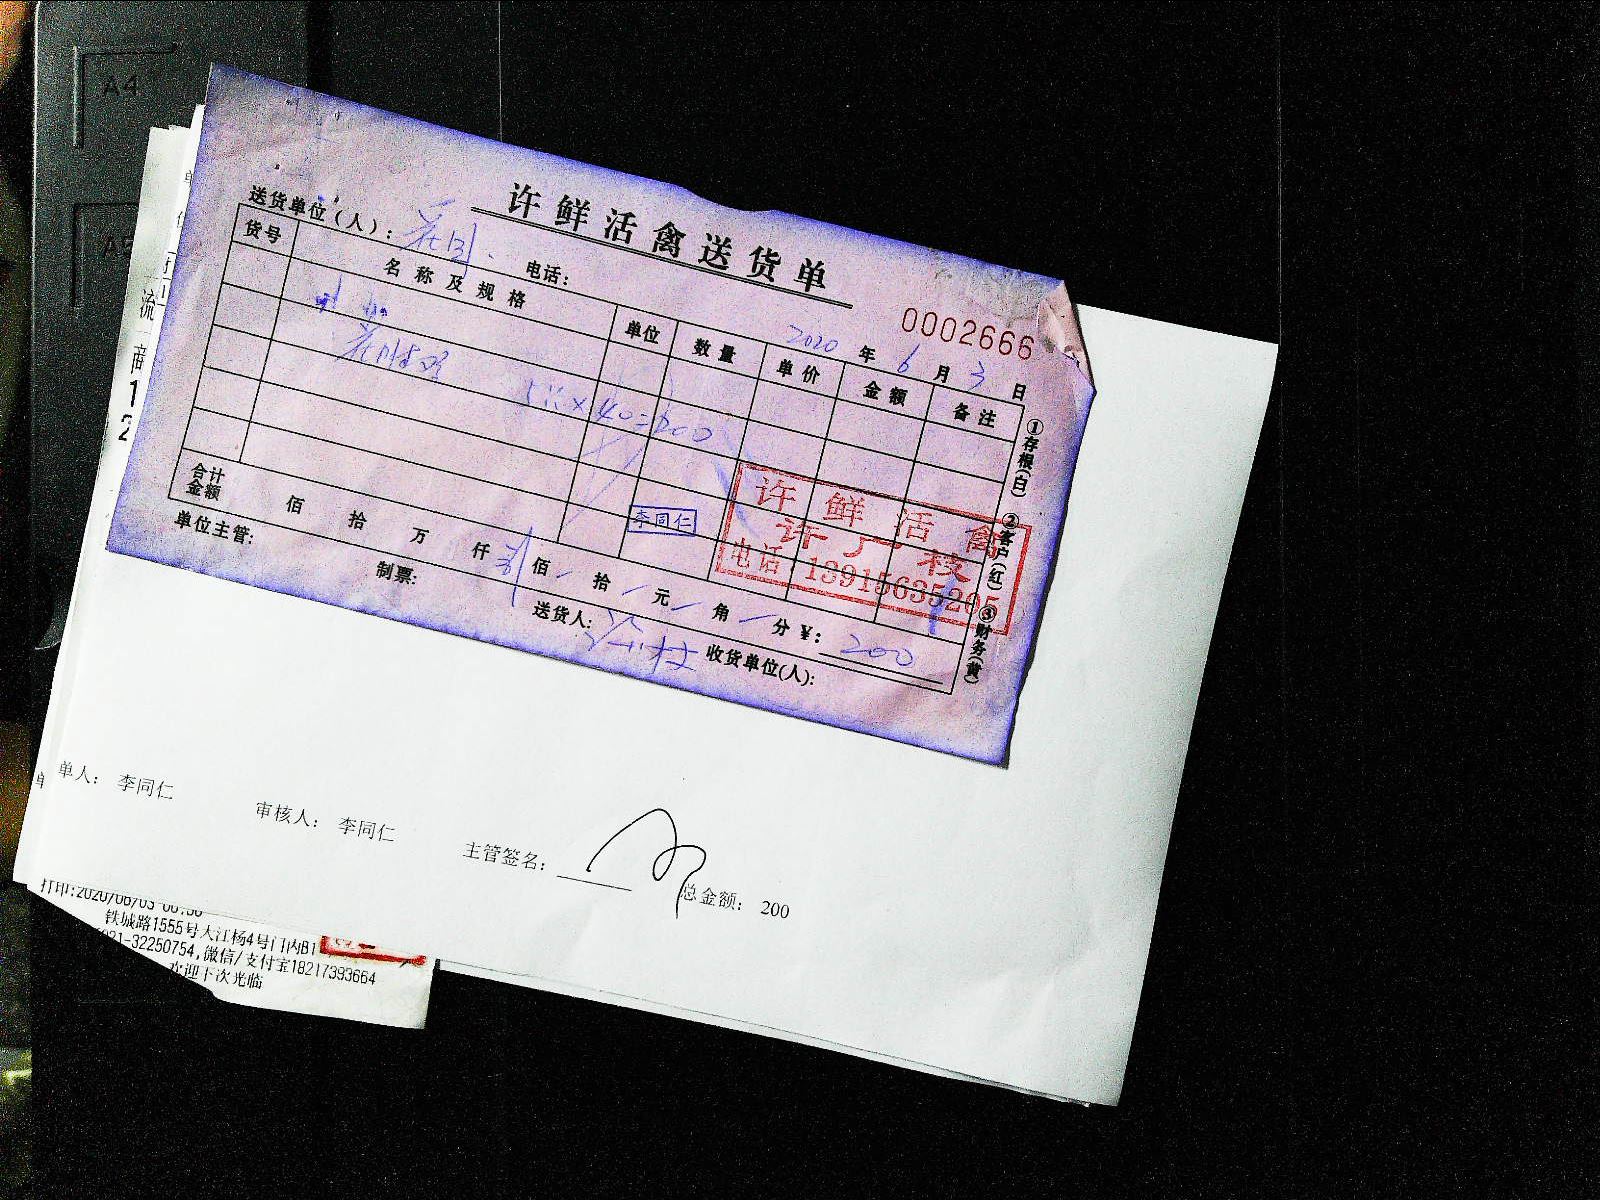 A4
A5
流
商
1
2
许鲜活禽送货单
送货单位(人):
电话:
0002666
2020年6月3日
货号 名称及规格 单位 数量 单价 金额 备注
×40=200
①存根(白) ②客户(红) ③财务(黄)
许鲜活禽
许广枝
电话:13915635205
李同仁
合计金额 佰 拾 万 仟 佰 拾 元 角 分 ¥: 200
单位主管: 制票: 送货人: 收货单位(人):
单人: 李同仁 审核人: 李同仁 主管签名: 总金额: 200
打印:2020/06/03
铁城路1555号大江杨4号门内B1
021-32250754,微信/支付宝18217393664
欢迎下次光临